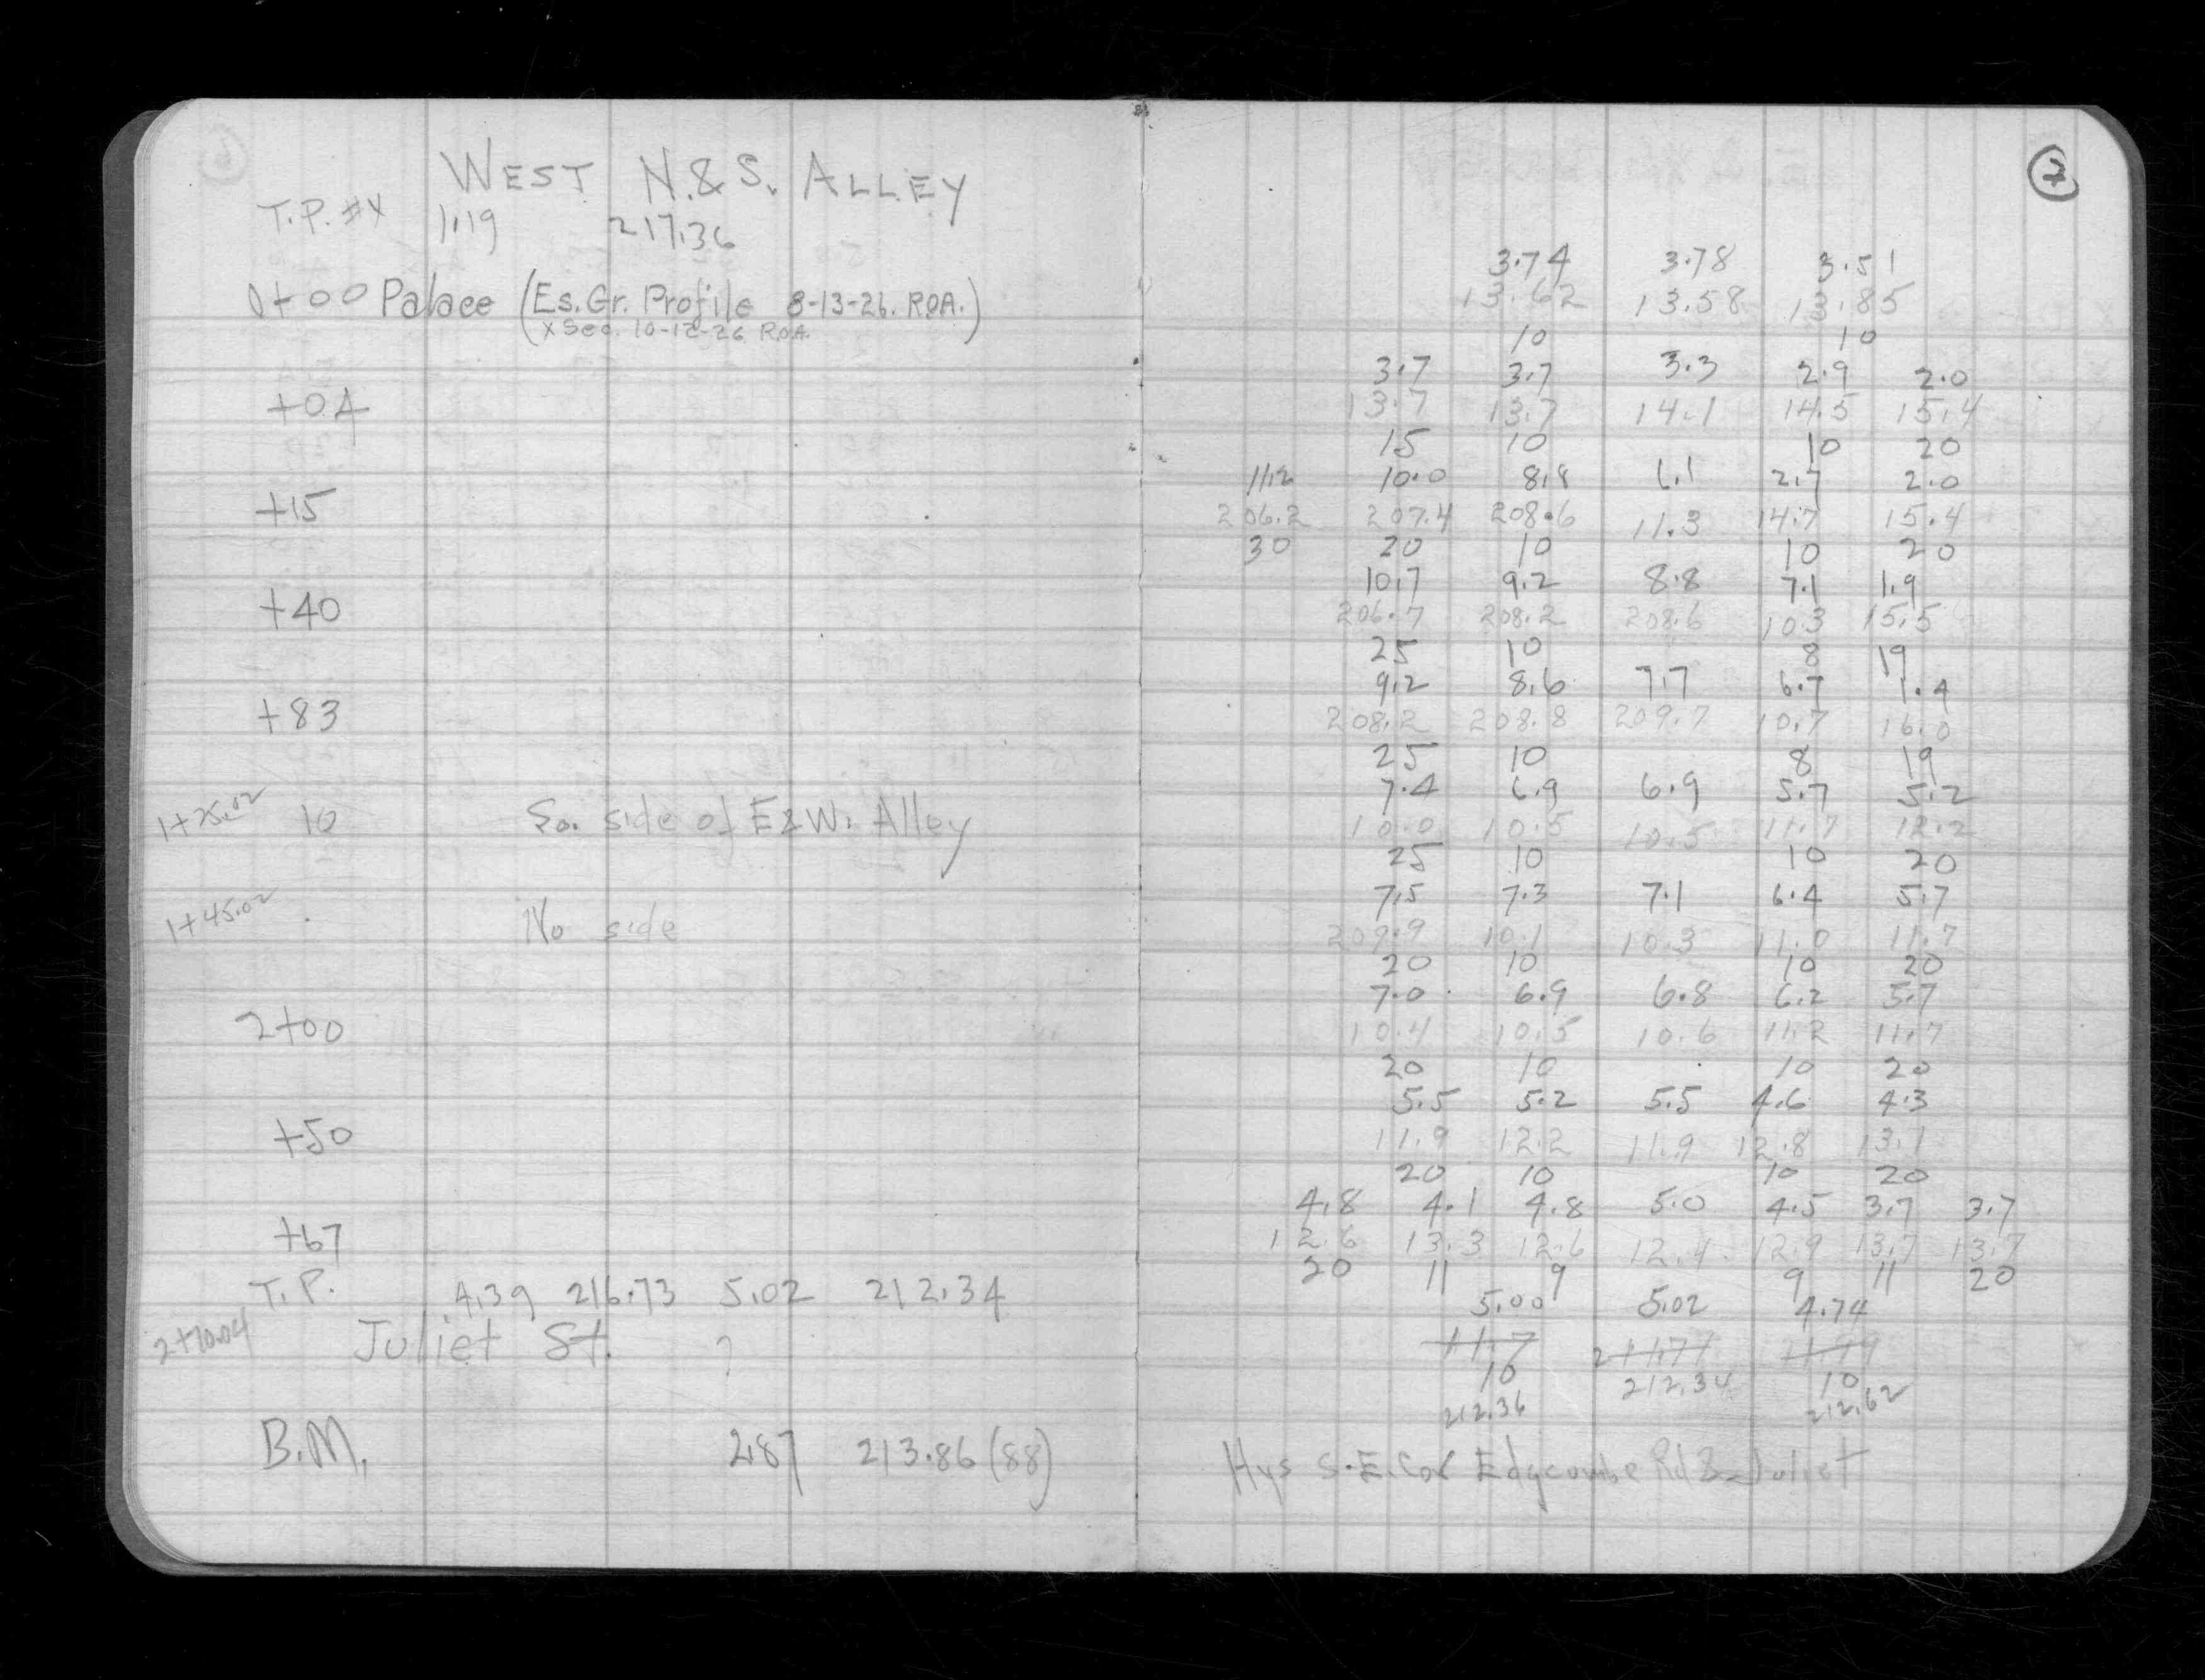 WEST N.&S. ALLEY
T.P. #4 1.19 217.36
0+00 Palace (Es. Gr. Profile 8-13-26. ROA.)
X Sec. 10-12-26 R.O.A.
+04
+15
+40
+83
1+25.02 10 So. side of E&W. Alley
1+45.02 No side
2+00
+50
+67
T.P. 4.39 216.73 5.02 212.34
2+70.04 Juliet St. ?
B.M. 2.87 213.86 (88)
7
3.74 3.78 3.51
13.62 13.58 13.85
10 10
3.7 3.7 3.3 2.9 2.0
13.7 13.7 14.1 14.5 15.4
15 10 10 20
11.2 10.0 8.8 6.1 2.7 2.0
206.2 207.4 208.6 11.3 14.7 15.4
30 20 10 10 20
10.7 9.2 8.8 7.1 1.9
206.7 208.2 208.6 10.3 15.5
25 10 8 19
9.2 8.6 7.7 6.7 1.4
208.2 208.8 209.7 10.7 16.0
25 10 8 19
7.4 6.9 6.9 5.7 5.2
10.0 10.5 10.5 11.7 12.2
25 10 10 20
7.5 7.3 7.1 6.4 5.7
209.9 10.1 10.3 11.0 11.7
20 10 10 20
7.0 6.9 6.8 6.2 5.7
10.4 10.5 10.6 11.2 11.7
20 10 10 20
5.5 5.2 5.5 4.6 4.3
11.9 12.2 11.9 12.8 13.1
20 10 10 20
4.8 4.1 4.8 5.0 4.5 3.7 3.7
12.6 13.3 12.6 12.4 12.9 13.7 13.7
20 11 9 9 11 20
5.00 5.02 4.74
11.7 211.77 11.99
10 10
212.36 212.34 212.62
Hys S.E. Cor Edgcombe Rd & Juliet